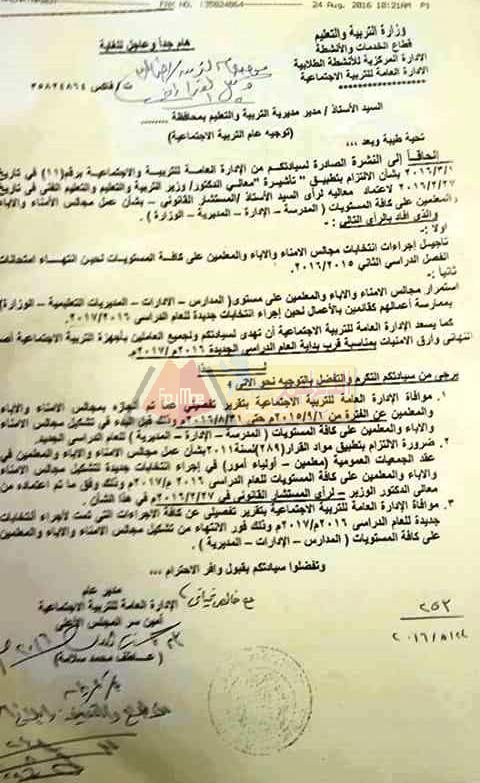 FAX NO. :35824864
24 Aug. 2016 10:21AM P1
وزارة التربية والتعليم
قطاع الخدمات والأنشطة
الإدارة المركزية للأنشطة الطلابية
الإدارة العامة للتربية الاجتماعية
هام جداً وعاجل للغاية
ت/ فاكس ٣٥٨٢٤٨٦٤
السيد الأستاذ / مدير مديرية التربية والتعليم بمحافظة ........
(توجيه عام التربية الاجتماعية)
تحية طيبة وبعد ...
إلحاقاً إلى النشرة الصادرة لسيادتكم من الإدارة العامة للتربية والاجتماعية برقم(١١) في تاريخ
٢٠١٦/٣/١ بشأن الالتزام بتطبيق " تأشيرة " معالي الدكتور/ وزير التربية والتعليم والتعليم الفني في تاريخ
٢٠١٦/٢/٢٧ لاعتماد معاليه لرأي السيد الأستاذ /المستشار القانوني – بشأن عمل مجالس الأمناء والاباء
والمعلمين على كافة المستويات ( المدرسة – الإدارة – المديرية – الوزارة ) .
والذي أفاد بالرأي التالي :-
اولا :-
تأجيل إجراءات انتخابات مجالس الامناء والاباء والمعلمين على كافة المستويات لحين انتهاء امتحانات
الفصل الدراسي الثاني ٢٠١٦/٢٠١٥.
ثانيا :-
استمرار مجالس الامناء والاباء والمعلمين على مستوى ( المدارس – الادارات – المديريات التعليمية – الوزارة)
بممارسة أعمالهم كقائمين بالأعمال لحين إجراء انتخابات جديدة للعام الدراسي ٢٠١٧/٢٠١٦ .
كما يسعد الإدارة العامة للتربية الاجتماعية أن تهدى لسيادتكم ولجميع العاملين بأجهزة التربية الاجتماعية أصدق
التهاني وأرق الامنيات بمناسبة قرب بداية العام الدراسي الجديدة ٢٠١٦م / ٢٠١٧م.
لذا
يرجى من سيادتكم التكرم والتفضل بالتوجيه نحو الاتي :
١. موافاة الإدارة العامة للتربية الاجتماعية بتقرير تفصيلي عما تم انجازه بمجالس الامناء والاباء
والمعلمين عن الفترة من ٢٠١٥/١/١م حتى ٢٠١٦/٨/٣١م وذلك قبل البدء في تشكيل مجالس الامناء
والاباء والمعلمين على كافة المستويات ( المدرسة – الإدارة – المديرية ) للعام الدراسي الجديد.
٢. ضرورة الالتزام بتطبيق مواد القرار (٢٨٩) لسنة ٢٠١١ بشأن عمل مجالس الامناء والاباء والمعلمين في
عقد الجمعيات العمومية (معلمين – أولياء أمور) في إجراء انتخابات جديدة لتشكيل مجالس الامناء
والاباء والمعلمين على كافة المستويات للعام الدراسي ٢٠١٦ م/٢٠١٧م وذلك وفق ما تم اعتماده من
معالي الدكتور الوزير – لرأي المستشار القانوني في ٢٠١٦/٢/٢٧م في هذا الشأن .
٣. موافاة الإدارة العامة للتربية الاجتماعية بتقرير تفصيلي عن كافة الإجراءات التي تمت لأجراء انتخابات
جديدة للعام الدراسي ٢٠١٦م/٢٠١٧م وذلك فور الانتهاء من تشكيل مجالس الامناء والاباء والمعلمين
على كافة المستويات ( المدارس – الإدارات – المديرية ) .
وتفضلوا سيادتكم بقبول وافر الاحترام ...
مدير عام
الإدارة العامة للتربية الاجتماعية
أمين سر المجلس الأعلى
( عاطف محمد سلامة )
٢٥٣